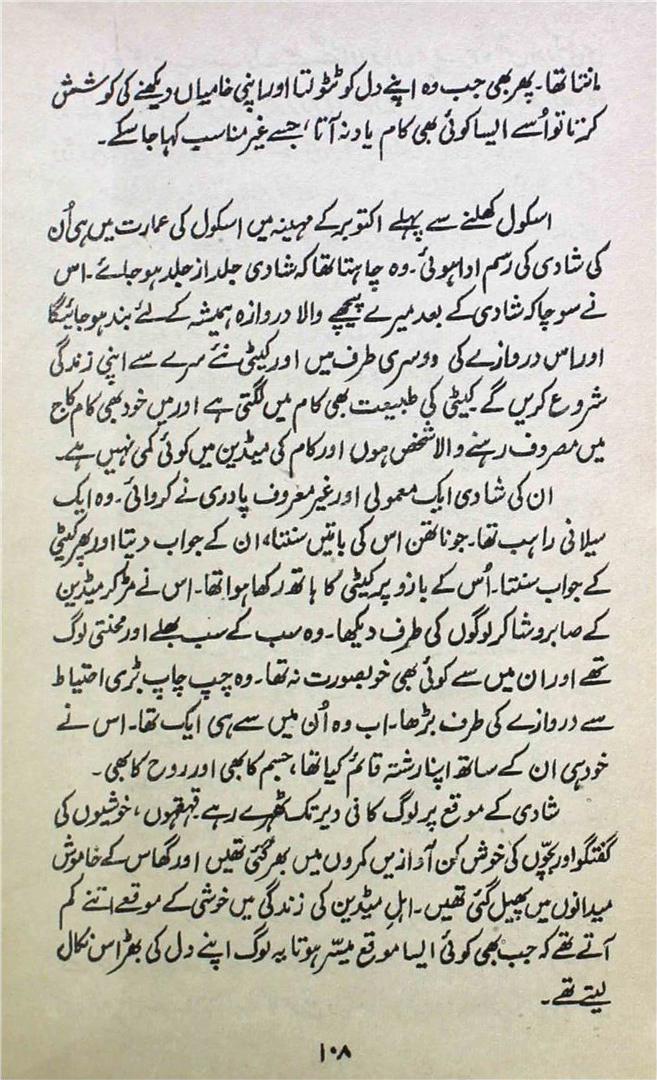 مانتا تھا۔ پھر بھی جب وہ اپنے دل کو ٹٹولتا اور اپنی خامیاں دیکھنے کی کوشش
کرتا تو اُسے ایسا کوئی بھی کام یاد نہ آتا، جسے غیر مناسب کہا جا سکے۔
اسکول کھلنے سے پہلے اکتوبر کے مہینہ میں اسکول کی عمارت میں ہی اُن
کی شادی کی رسم ادا ہوئی۔ وہ چاہتا تھا کہ شادی جلد از جلد ہو جائے۔ اس
نے سوچا کہ شادی کے بعد میرے پیچھے والا دروازہ ہمیشہ کے لئے بند ہو جائیگا
اور اس دروازے کی دوسری طرف میں اور کیٹی نئے سرے سے اپنی زندگی
شروع کریں گے۔ کیٹی کی طبیعت بھی کام میں لگتی ہے اور میں خود بھی کام کاج
میں مصروف رہنے والا شخص ہوں اور کام کی میڈین میں کوئی کمی نہیں ہے۔
ان کی شادی ایک معمولی اور غیر معروف پادری نے کروائی۔ وہ ایک
سیلانی راہب تھا۔ جوناتھن اس کی باتیں سنتا، ان کے جواب دیتا اور پھر کیٹی
کے جواب سنتا۔ اُس کے بازو پر کیٹی کا ہاتھ رکھا ہوا تھا۔ اس نے مڑ کر میڈین
کے صابر و شاکر لوگوں کی طرف دیکھا۔ وہ سب کے سب بھلے اور محنتی لوگ
تھے اور ان میں سے کوئی بھی خوبصورت نہ تھا۔ وہ چپ چاپ بڑی احتیاط
سے دروازے کی طرف بڑھا۔ اب وہ اُن میں سے ہی ایک تھا۔ اس نے
خود ہی ان کے ساتھ اپنا رشتہ قائم کیا تھا، جسم کا بھی اور روح کا بھی۔
شادی کے موقع پر لوگ کافی دیر تک ٹھہرے رہے۔ قہقہوں، خوشیوں کی
گفتگو اور بچّوں کی خوش کن آوازیں کمروں میں بھر گئی تھیں اور گھاس کے خاموش
میدانوں میں پھیل گئی تھیں۔ اہلِ میڈین کی زندگی میں خوشی کے موقعے اتنے کم
آتے تھے کہ جب بھی کوئی ایسا موقع میسّر ہوتا یہ لوگ اپنے دل کی بھڑاس نکال
لیتے تھے۔
۱۰۸